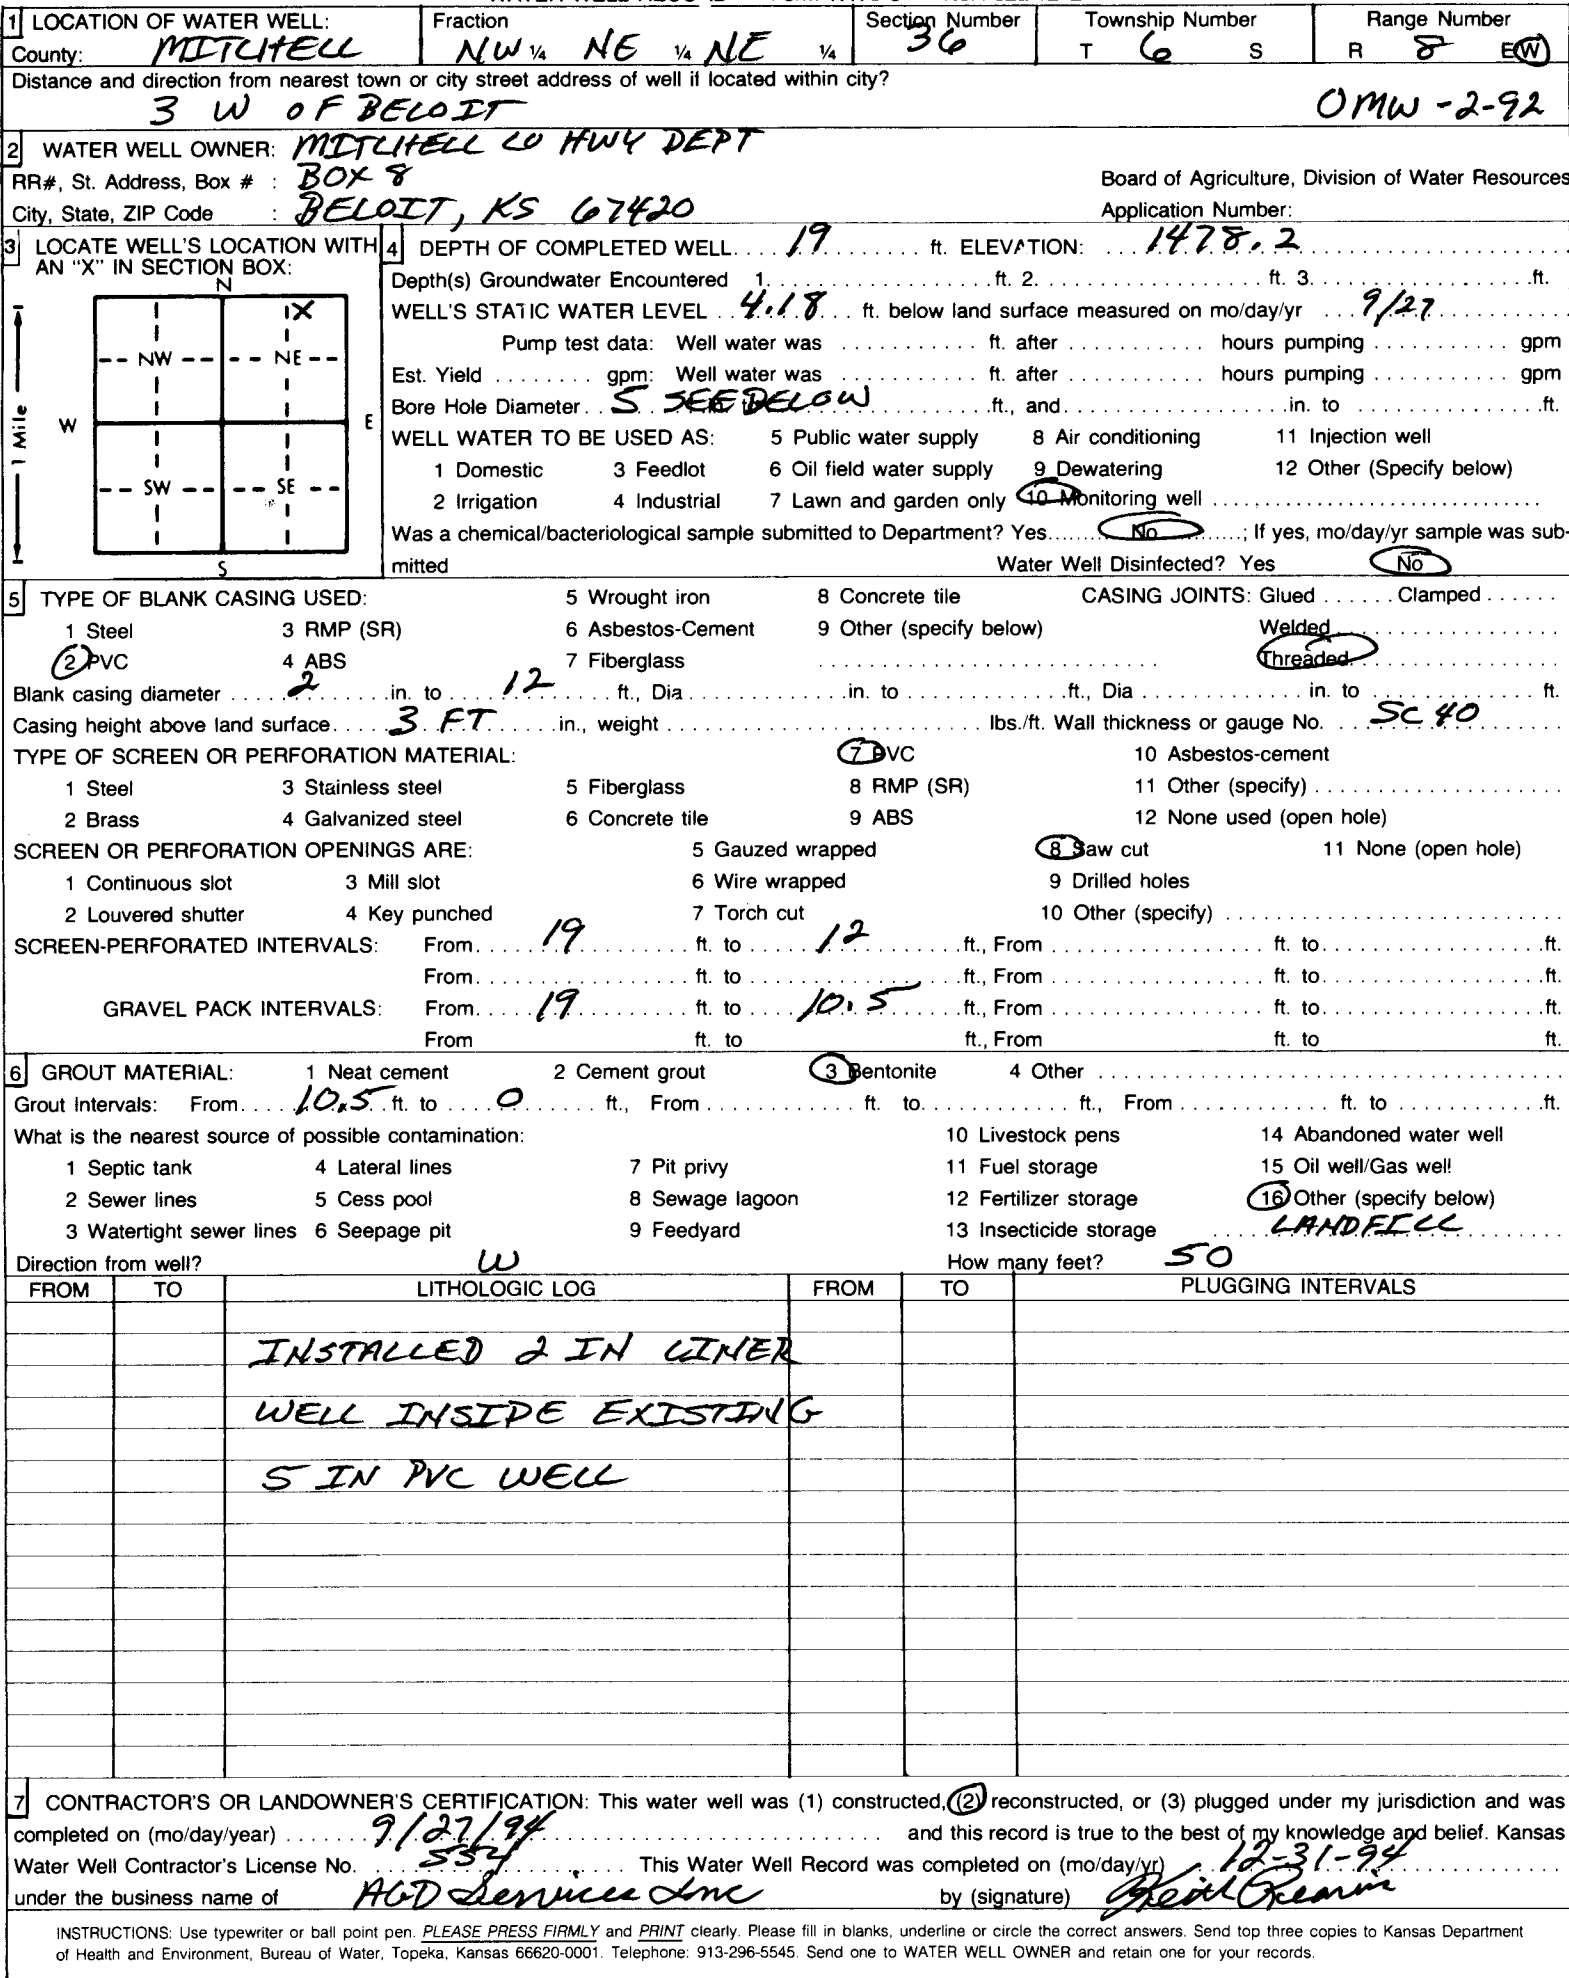 1 LOCATION OF WATER WELL: Fraction Section Number Township Number Range Number
County: MITCHELL NW ¼ NE ¼ NE ¼ 36 T 6 S R 8 E(W)
Distance and direction from nearest town or city street address of well if located within city?
3 W OF BELOIT OMW-2-92
2 WATER WELL OWNER: MITCHELL CO HWY DEPT
RR#, St. Address, Box # : BOX 8 Board of Agriculture, Division of Water Resources
City, State, ZIP Code : BELOIT, KS 67420 Application Number:
3 LOCATE WELL'S LOCATION WITH AN "X" IN SECTION BOX:
N
X
NW NE
W E
SW SE
S
1 Mile
4 DEPTH OF COMPLETED WELL.... 19 ft. ELEVATION: 1478.2
Depth(s) Groundwater Encountered 1. ft. 2. ft. 3. ft.
WELL'S STATIC WATER LEVEL 4.18 ft. below land surface measured on mo/day/yr 9/27
Pump test data: Well water was ft. after hours pumping gpm
Est. Yield gpm: Well water was ft. after hours pumping gpm
Bore Hole Diameter 5 SEE BELOW ft., and in. to ft.
WELL WATER TO BE USED AS: 5 Public water supply 8 Air conditioning 11 Injection well
1 Domestic 3 Feedlot 6 Oil field water supply 9 Dewatering 12 Other (Specify below)
2 Irrigation 4 Industrial 7 Lawn and garden only 10 Monitoring well
Was a chemical/bacteriological sample submitted to Department? Yes No ; If yes, mo/day/yr sample was sub-
mitted Water Well Disinfected? Yes No
5 TYPE OF BLANK CASING USED: 5 Wrought iron 8 Concrete tile CASING JOINTS: Glued Clamped
1 Steel 3 RMP (SR) 6 Asbestos-Cement 9 Other (specify below) Welded
2 PVC 4 ABS 7 Fiberglass Threaded
Blank casing diameter 2 in. to 12 ft., Dia in. to ft., Dia in. to ft.
Casing height above land surface 3 FT in., weight lbs./ft. Wall thickness or gauge No. SC 40
TYPE OF SCREEN OR PERFORATION MATERIAL: 7 PVC 10 Asbestos-cement
1 Steel 3 Stainless steel 5 Fiberglass 8 RMP (SR) 11 Other (specify)
2 Brass 4 Galvanized steel 6 Concrete tile 9 ABS 12 None used (open hole)
SCREEN OR PERFORATION OPENINGS ARE: 5 Gauzed wrapped 8 Saw cut 11 None (open hole)
1 Continuous slot 3 Mill slot 6 Wire wrapped 9 Drilled holes
2 Louvered shutter 4 Key punched 7 Torch cut 10 Other (specify)
SCREEN-PERFORATED INTERVALS: From 19 ft. to 12 ft., From ft. to ft.
From ft. to ft., From ft. to ft.
GRAVEL PACK INTERVALS: From 19 ft. to 10.5 ft., From ft. to ft.
From ft. to ft., From ft. to ft.
6 GROUT MATERIAL: 1 Neat cement 2 Cement grout 3 Bentonite 4 Other
Grout Intervals: From 10.5 ft. to 0 ft., From ft. to ft., From ft. to ft.
What is the nearest source of possible contamination: 10 Livestock pens 14 Abandoned water well
1 Septic tank 4 Lateral lines 7 Pit privy 11 Fuel storage 15 Oil well/Gas well
2 Sewer lines 5 Cess pool 8 Sewage lagoon 12 Fertilizer storage 16 Other (specify below)
3 Watertight sewer lines 6 Seepage pit 9 Feedyard 13 Insecticide storage LANDFILL
Direction from well? W How many feet? 50
FROM TO LITHOLOGIC LOG FROM TO PLUGGING INTERVALS
INSTALLED 2 IN LINER
WELL INSIDE EXISTING
5 IN PVC WELL
7 CONTRACTOR'S OR LANDOWNER'S CERTIFICATION: This water well was (1) constructed, (2) reconstructed, or (3) plugged under my jurisdiction and was
completed on (mo/day/year) 9/27/94 and this record is true to the best of my knowledge and belief. Kansas
Water Well Contractor's License No. 554 This Water Well Record was completed on (mo/day/yr) 12-31-94
under the business name of AGD Services Inc by (signature) Keith
INSTRUCTIONS: Use typewriter or ball point pen. PLEASE PRESS FIRMLY and PRINT clearly. Please fill in blanks, underline or circle the correct answers. Send top three copies to Kansas Department
of Health and Environment, Bureau of Water, Topeka, Kansas 66620-0001. Telephone: 913-296-5545. Send one to WATER WELL OWNER and retain one for your records.